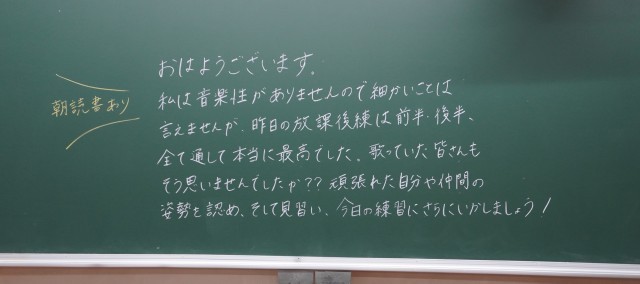 朝読書あり
おはようございます。
私は音楽性がありませんので細かいことは
言えませんが、昨日の放課後練は前半・後半、
全て通して本当に最高でした。歌っていた皆さんも
そう思いませんでしたか?? 頑張れた自分や仲間の
姿勢を認め、そして見習い、今日の練習にさらにいかしましょう!